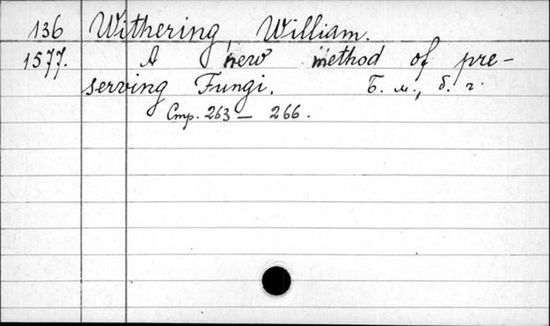 136 Withering, William.
1577. A new method of pre-
serving Fungi. Б. м., б. г.
Стр. 263 — 266.